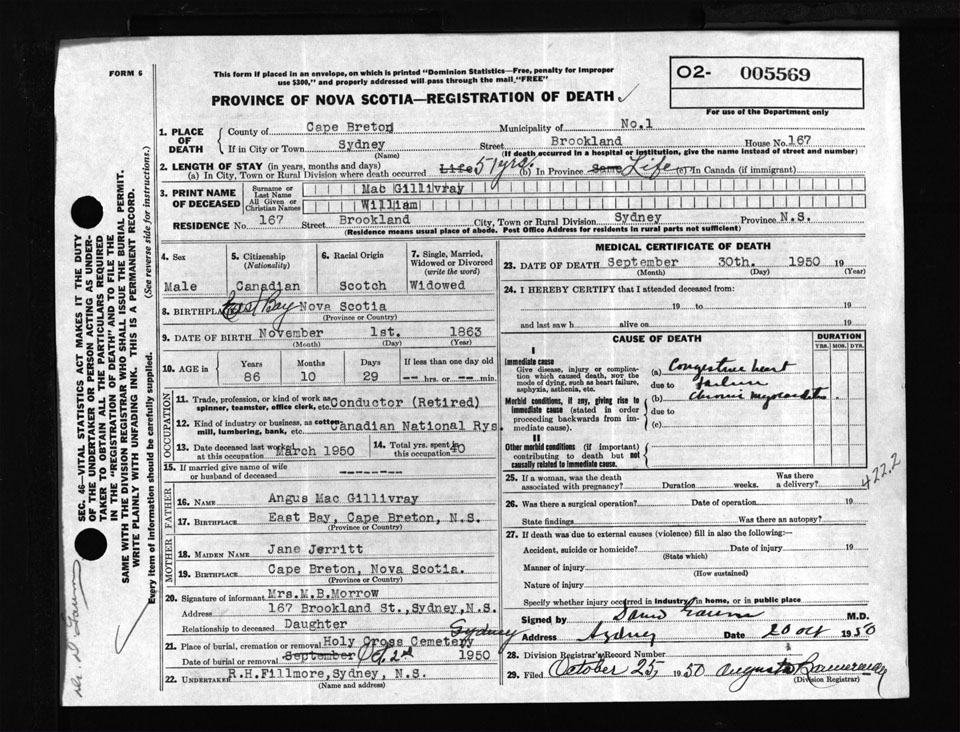 FORM 6
This form if placed in an envelope, on which is printed "Dominion Statistics—Free, penalty for improper
use $300," and properly addressed will pass through the mail "FREE"
O2- 005569
For use of the Department only
PROVINCE OF NOVA SCOTIA—REGISTRATION OF DEATH
1. PLACE OF DEATH { County of Cape Breton Municipality of No.1
If in City or Town Sydney Street Brookland House No. 167
(Name) (If death occurred in a hospital or institution, give the name instead of street and number)
2. LENGTH OF STAY (in years, months and days)
(a) In City, Town or Rural Division where death occurred Life 57 yrs. (b) In Province Same Life (c) In Canada (if immigrant)
3. PRINT NAME OF DECEASED { Surname or Last Name Mac Gillivray
All Given or Christian Names William
RESIDENCE No. 167 Street Brookland City, Town or Rural Division Sydney Province N.S.
(Residence means usual place of abode. Post Office Address for residents in rural parts not sufficient)
4. Sex 5. Citizenship (Nationality) 6. Racial Origin 7. Single, Married, Widowed or Divorced (write the word)
Male Canadian Scotch Widowed
8. BIRTHPLACE East Bay Nova Scotia
(Province or Country)
9. DATE OF BIRTH November 1st. 1863
(Month) (Day) (Year)
10. AGE in Years Months Days If less than one day old
86 10 29 -- hrs. or -- min.
OCCUPATION
11. Trade, profession, or kind of work as spinner, teamster, office clerk, etc. Conductor (Retired)
12. Kind of industry or business, as cotton mill, lumbering, bank, etc. Canadian National Rys.
13. Date deceased last worked at this occupation March 1950 14. Total yrs. spent in this occupation 40
15. If married give name of wife or husband of deceased -------
FATHER
16. NAME Angus Mac Gillivray
17. BIRTHPLACE East Bay, Cape Breton, N.S.
(Province or Country)
MOTHER
18. MAIDEN NAME Jane Jerritt
19. BIRTHPLACE Cape Breton, Nova Scotia.
(Province or Country)
20. Signature of informant Mrs.M.B.Morrow
Address 167 Brookland St.,Sydney,N.S.
Relationship to deceased Daughter
21. Place of burial, cremation or removal Holy Cross Cemetery Sydney
Date of burial or removal September Oct. 2nd 1950
22. UNDERTAKER R.H.Fillmore,Sydney, N.S.
(Name and address)
MEDICAL CERTIFICATE OF DEATH
23. DATE OF DEATH September 30th. 1950 19
(Month) (Day) (Year)
24. I HEREBY CERTIFY that I attended deceased from:
19 to 19
and last saw h alive on 19
CAUSE OF DEATH DURATION
YRS. MOS. DYS.
I
Immediate cause
Give disease, injury or complication which caused death, NOT the mode of dying, such as heart failure, asphyxia, asthenia, etc.
(a) Congestive heart
due to failure
Morbid conditions, if any, giving rise to immediate cause (stated in order proceeding backwards from immediate cause).
(b) chronic myocarditis
due to
(c)
II
Other morbid conditions (if important) contributing to death but not causally related to immediate cause.
422.2
25. If a woman, was the death associated with pregnancy? Duration weeks. Was there a delivery?
26. Was there a surgical operation? Date of operation 19
State findings Was there an autopsy?
27. If death was due to external causes (violence) fill in also the following:—
Accident, suicide or homicide? Date of injury 19
(State which)
Manner of injury
(How sustained)
Nature of injury
Specify whether injury occurred in industry, in home, or in public place
Signed by M.D.
Address Sydney Date 20 oct 1950
28. Division Registrar's Record Number
29. Filed October 25, 1950 Augusta Bannerman
(Division Registrar)
SEC. 46—VITAL STATISTICS ACT MAKES IT THE DUTY
OF THE UNDERTAKER OR PERSON ACTING AS UNDER-
TAKER TO OBTAIN ALL THE PARTICULARS REQUIRED
IN THE "REGISTRATION OF DEATH" AND TO FILE THE
SAME WITH THE DIVISION REGISTRAR WHO SHALL ISSUE THE BURIAL PERMIT.
WRITE PLAINLY WITH UNFADING INK. THIS IS A PERMANENT RECORD.
Every item of information should be carefully supplied. (See reverse side for instructions.)